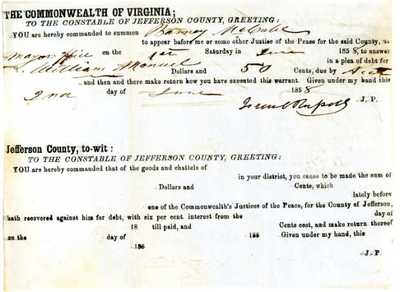 THE COMMONWEALTH OF VIRGINIA;
TO THE CONSTABLE OF JEFFERSON COUNTY, GREETING:
YOU are hereby commanded to summon
to appear before me or some other Justice of the Peace for the said County, at
on the Saturday in June 1858, to answer
William in a plea of debt for
Dollars and 50 Cents, due by
and then and there make return how you have executed this warrant. Given under my hand this
2nd day of June 1858
J. P.
Jefferson County, to-wit:
TO THE CONSTABLE OF JEFFERSON COUNTY, GREETING:
YOU are hereby commanded that of the goods and chattels of
in your district, you cause to be made the sum of
Dollars and Cents, which
lately before
one of the Commonwealth's Justices of the Peace, for the County of Jefferson,
hath recovered against him for debt, with six per cent. interest from the day of
18 till paid, and Cents cost, and make return thereof
on the day of 185 Given under my hand, this
185 J. P.